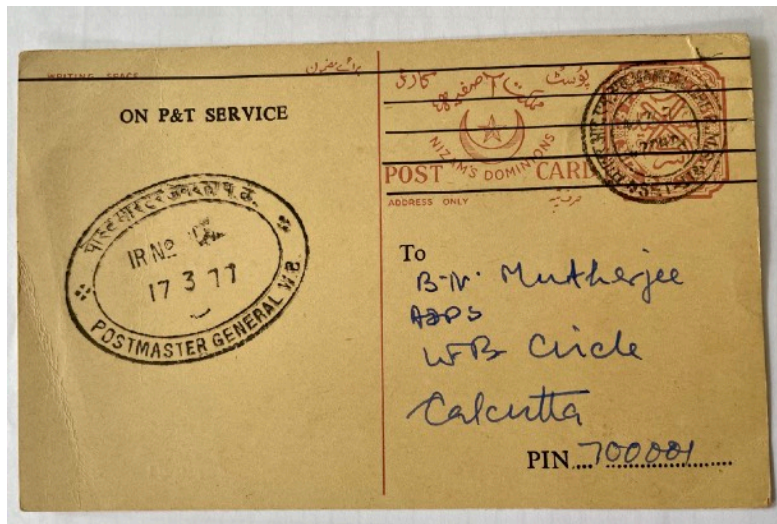 WRITING SPACE
برائے مضمون
ON P&T SERVICE
पोस्टमास्टर जनरल प. बं.
IR No
17 3 77
POSTMASTER GENERAL W.B.
پوسٹ کارڈ
مملکت آصفیہ
NIZAM'S DOMINIONS
POST CARD
ADDRESS ONLY
صرف پتہ
To
B.N. Mukherjee
ADPS
WB Circle
Calcutta
PIN...700001